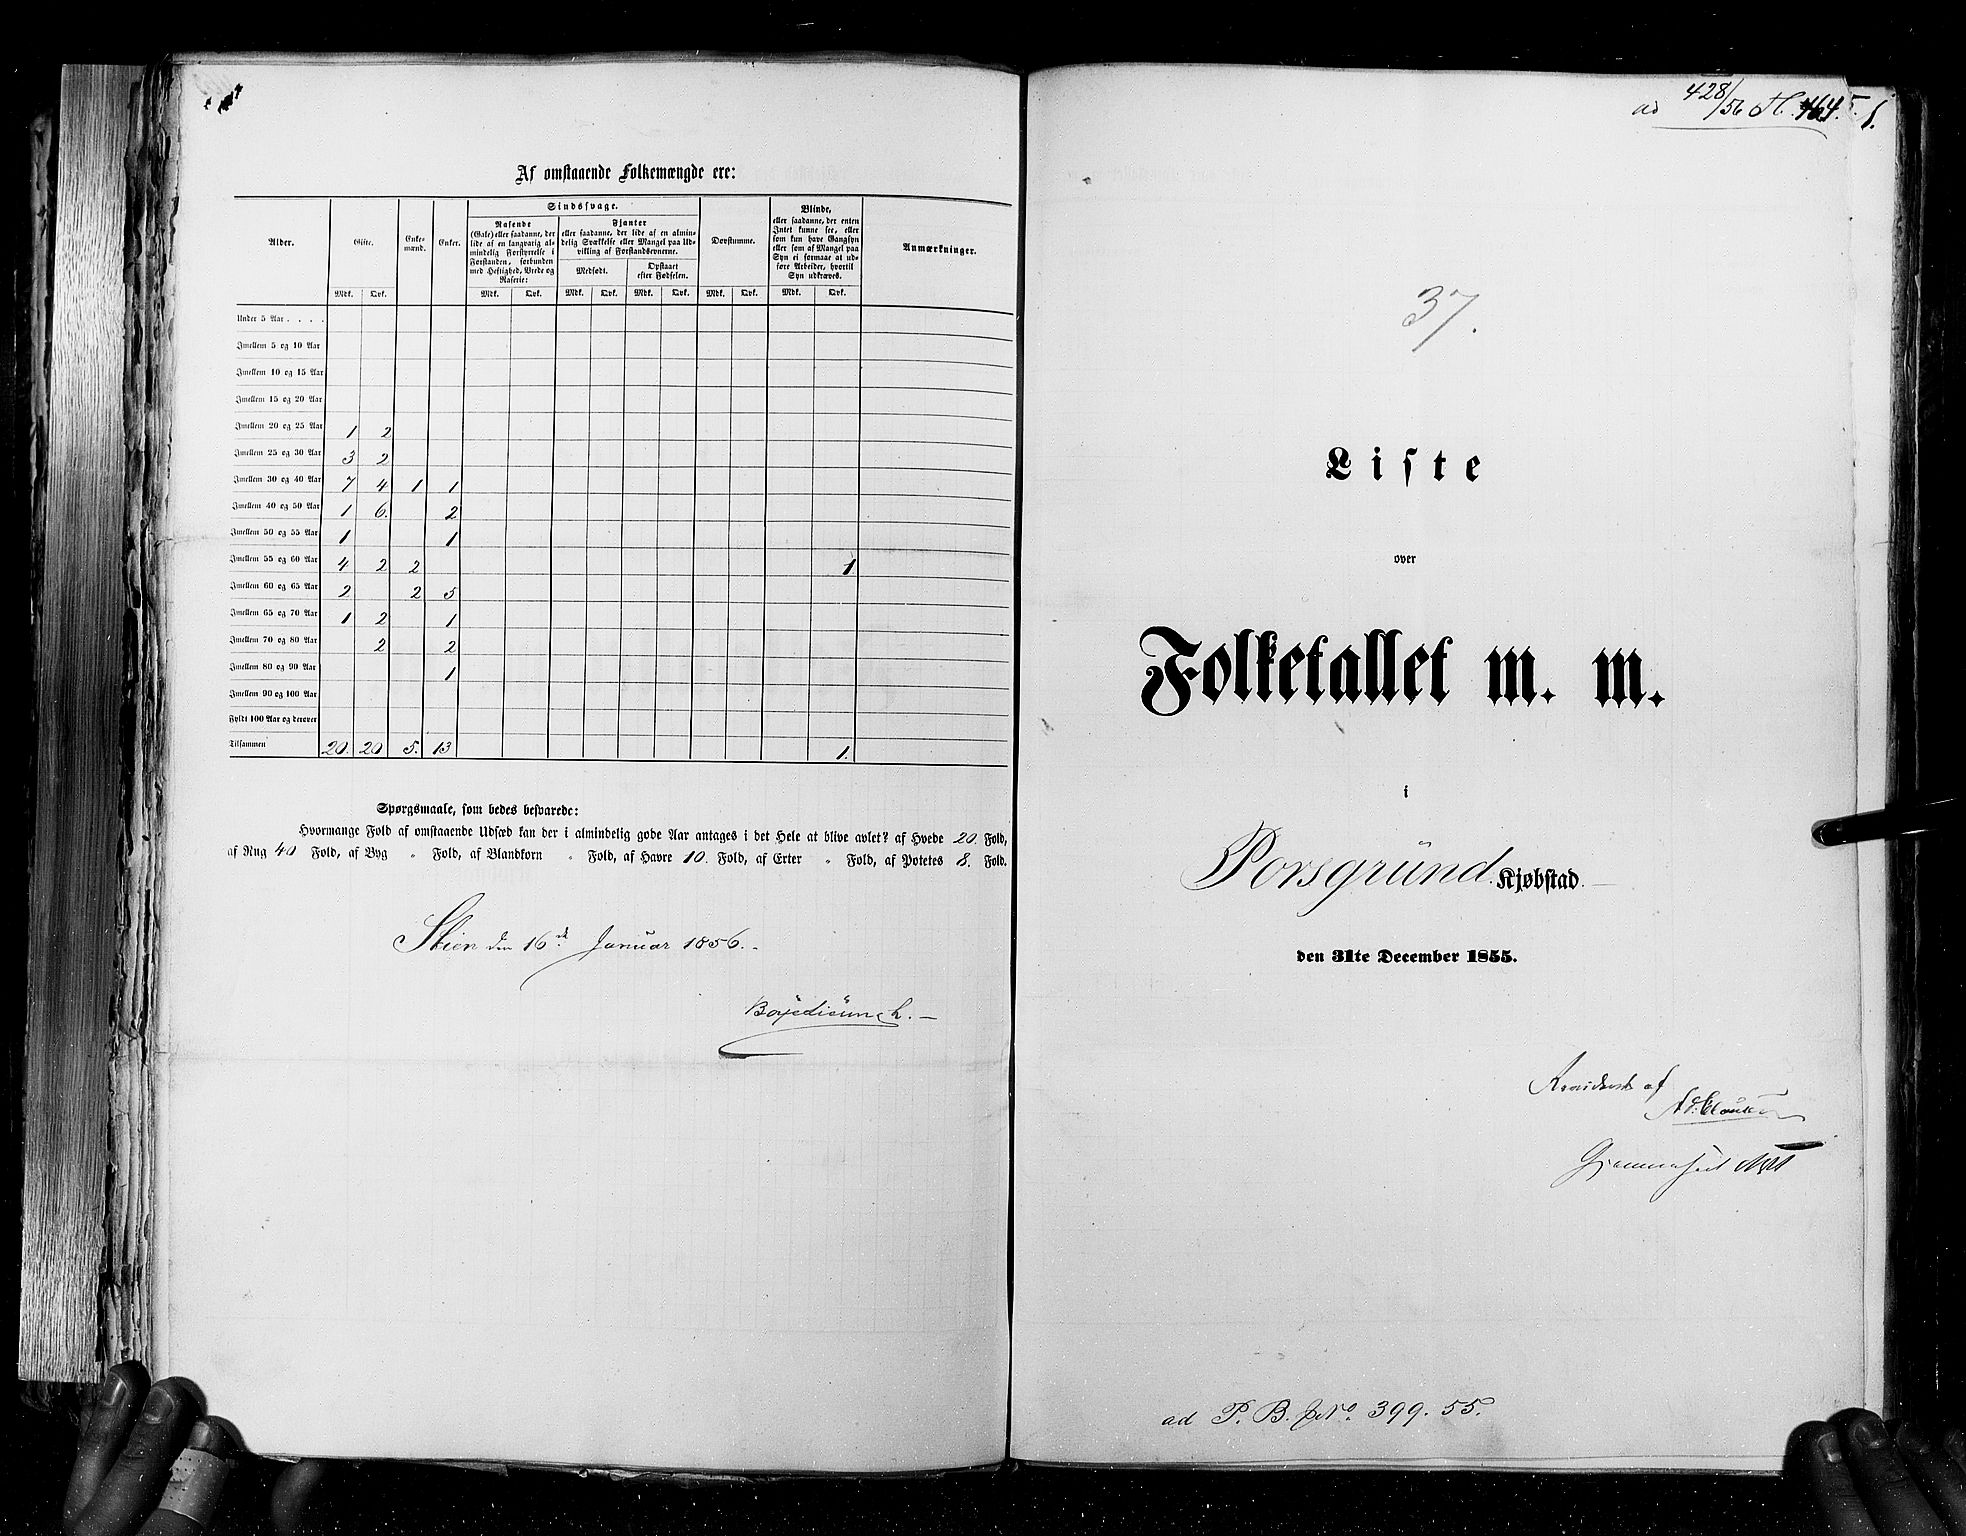 Af omstaaende Folkemængde ere:
Alder. Gifte. Enke-mænd. Enker. Sindssvage. Døvstumme. Blinde, eller saadanne, der enten Intet kunne see, eller som kun have Gangsyn eller som af Mangel paa Syn ei formaae at udføre Arbeider, hvortil Syn udkræves. Anmærkninger.
Rasende (Gale) eller saadanne, der lide af en langvarig almindelig Forstyrrelse i Forstanden, forbunden med Heftighed, Vrede og Raserie:
Fjanter eller saadanne, der lide af en almindelig Svækkelse eller Mangel paa Udvikling af Forstandsevnerne.
Medfødt. Opstaaet efter Fødselen.
Mdk. Qvk. Mdk. Qvk. Mdk. Qvk. Mdk. Qvk. Mdk. Qvk. Mdk. Qvk.
Under 5 Aar . . . .
Imellem 5 og 10 Aar
Imellem 10 og 15 Aar
Imellem 15 og 20 Aar
Imellem 20 og 25 Aar 1 2
Imellem 25 og 30 Aar 3 2
Imellem 30 og 40 Aar 7 4 1 1
Imellem 40 og 50 Aar 1 6. 2
Imellem 50 og 55 Aar 1 1
Imellem 55 og 60 Aar 4 2 2 1
Imellem 60 og 65 Aar 2 2 5
Imellem 65 og 70 Aar 1 2 1
Imellem 70 og 80 Aar 2 2
Imellem 80 og 90 Aar 1
Imellem 90 og 100 Aar
Fyldt 100 Aar og derover
Tilsammen 20. 20 5. 13 1.
Spørgsmaale, som bedes besvarede:
Hvormange Fold af omstaaende Udsæd kan der i almindelig gode Aar antages i det Hele at blive avlet? af Hvede 20 Fold,
af Rug 40 Fold, af Byg " Fold, af Blandkorn " Fold, af Havre 10. Fold, af Erter " Fold, af Potetes 8. Fold.
Skien den 16de Januar 1856.
ad 428/56 464. 1.
37.
Liste
over
Folketallet m. m.
i
Porsgrund Kjøbstad.
den 31te December 1855.
Revideret af
ad P. B. jr No. 399. 55.